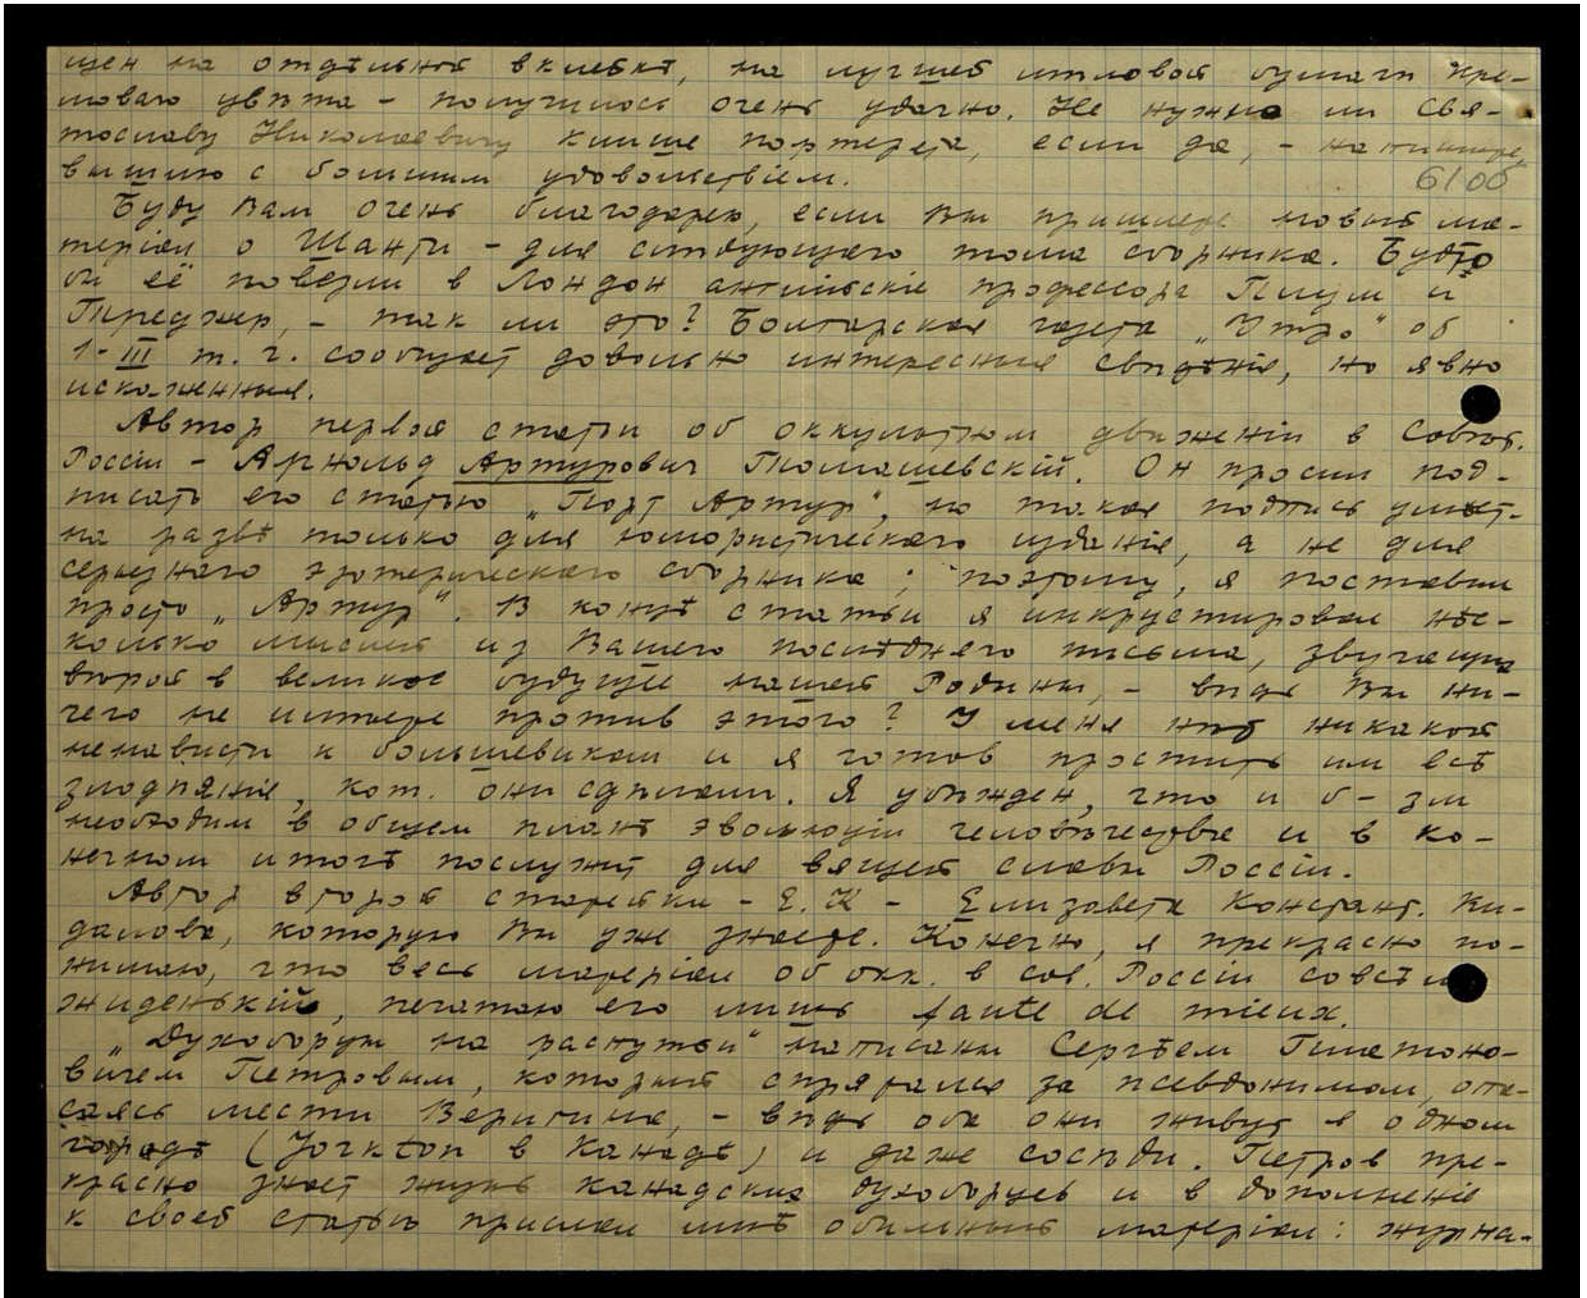 щен на отдѣльной вклейкѣ, на лучшей мѣловой бумаги кре-
моваго цвѣта - получилось очень удачно. Не нужно ли Свя-
тославу Николаевичу клише портрета, если да, - напишите,
вышлю с большим удовольствіем.
6/об
Буду Вам очень благодарен, если Вы пришлете новый ма-
теріал о Шанти - для слѣдующаго тома сборника. Будто
бы её повезли в Лондон англійскіе профессора и
- так ли это? Болгарская газета „Утро" об
1-III т. г. сообщает довольно интересные свѣдѣнія, но явно
искаженныя.
Автор первой статьи об оккультном движеніи в Совѣтс.
Россіи - Арнольд Артурович Гномашевскій. Он просил под-
писать его статью „Порт Артур", но такая подпись умѣст-
на развѣ только для юмористическаго изданія, а не для
серьезнаго эзотерическаго сборника; поэтому, я поставил
просто „Артур". В концѣ статьи я инкрустировал нѣс-
колько мыслей из Вашего послѣдняго письма, звучащих
вѣрой в великое будущее нашей Родины, - вѣдь Вы ни-
чего не имѣете против этого? У меня нѣт никакой
ненависти к большевикам и я готов простить им всѣ
злодѣянія, кот. они сдѣлали. Я убѣжден, что и б-зм
необходим в общем планѣ эволюціи человѣчества и в ко-
нечном итогѣ послужит для вящей славы Россіи.
Автор второй статейки - Е. К - Елизавета Констант. Ки-
далова, которую Вы уже знаете. Конечно, я прекрасно по-
нимаю, что весь матеріал об окк. в сов. Россіи совсѣм
жиденькій, печатаю его лишь faute de mieux.
„Духоборцы на распутьи" написаны Сергѣем Платоно-
вичем Петровым, который спрятался за псевдонимом, опа-
саясь мести Веригина, - вѣдь оба они живут в одном
городѣ (Yorkton в Канадѣ) и даже сосѣди. Петров пре-
красно знает жизнь канадских духоборцев и в дополненіе
к своей статьѣ прислал мнѣ обильный матеріал: журна-